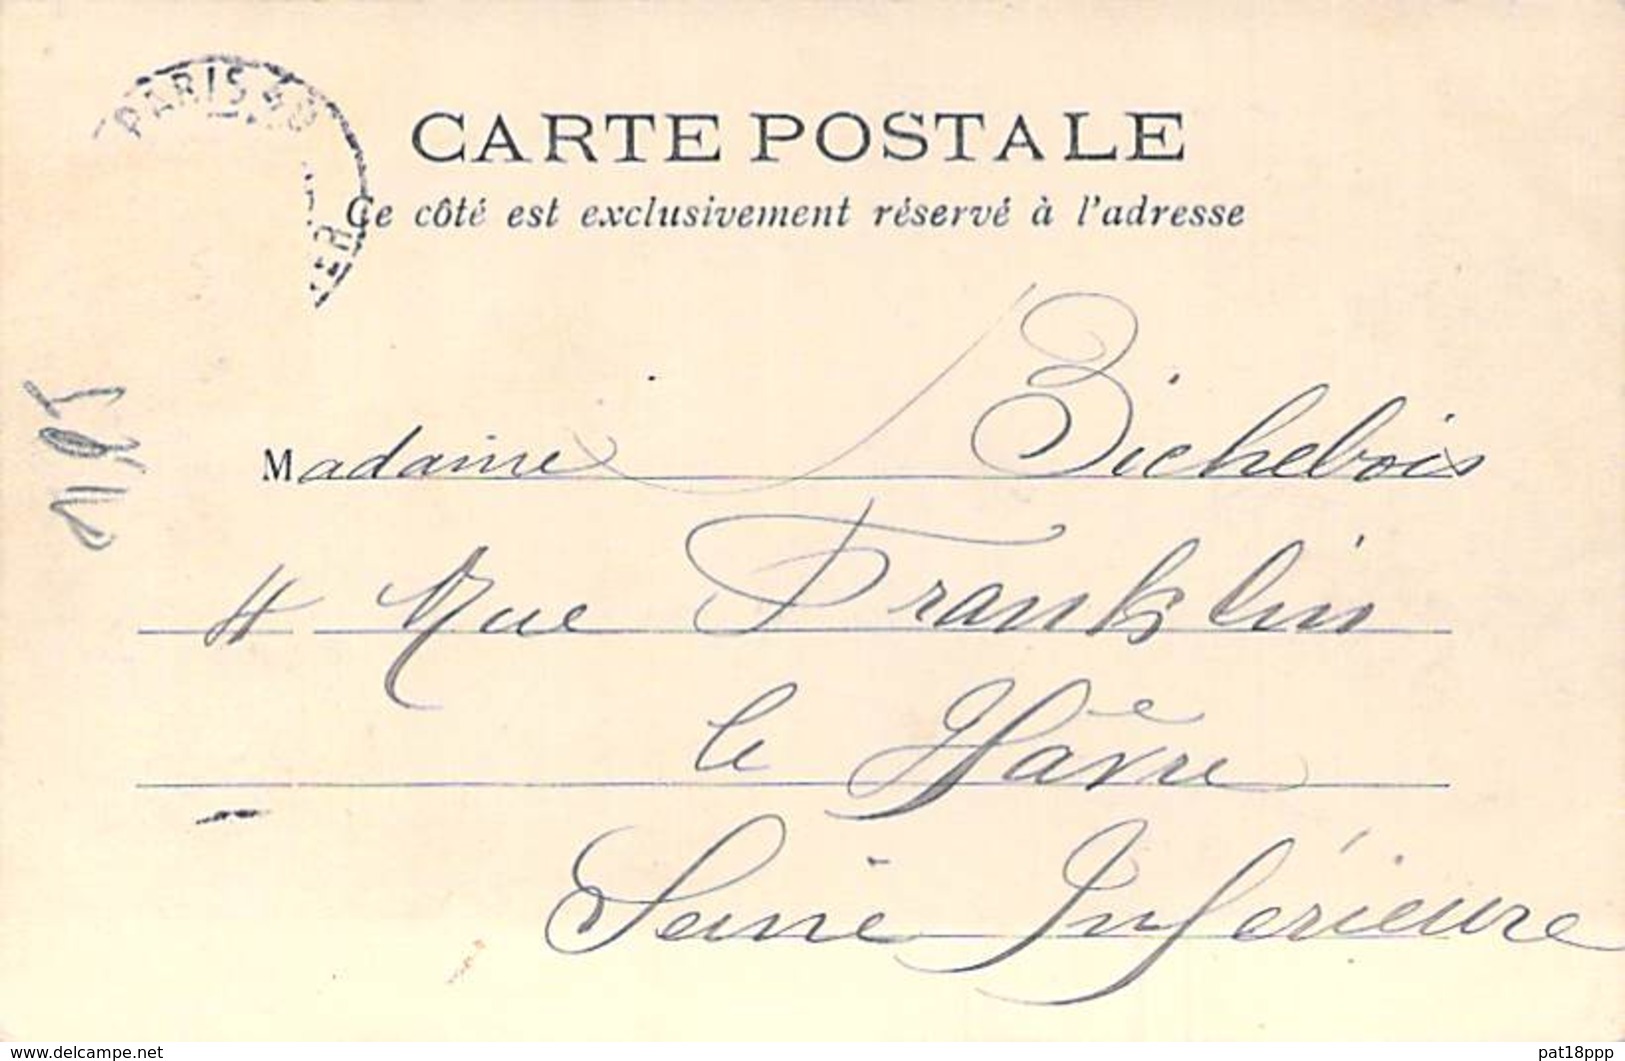 PARIS 48
CARTE POSTALE
Ce côté est exclusivement réservé à l'adresse
Madame Bichebois
4 Rue Franklin
le Hâvre
Seine Inférieure
www.delcampe.net
pat18ppp